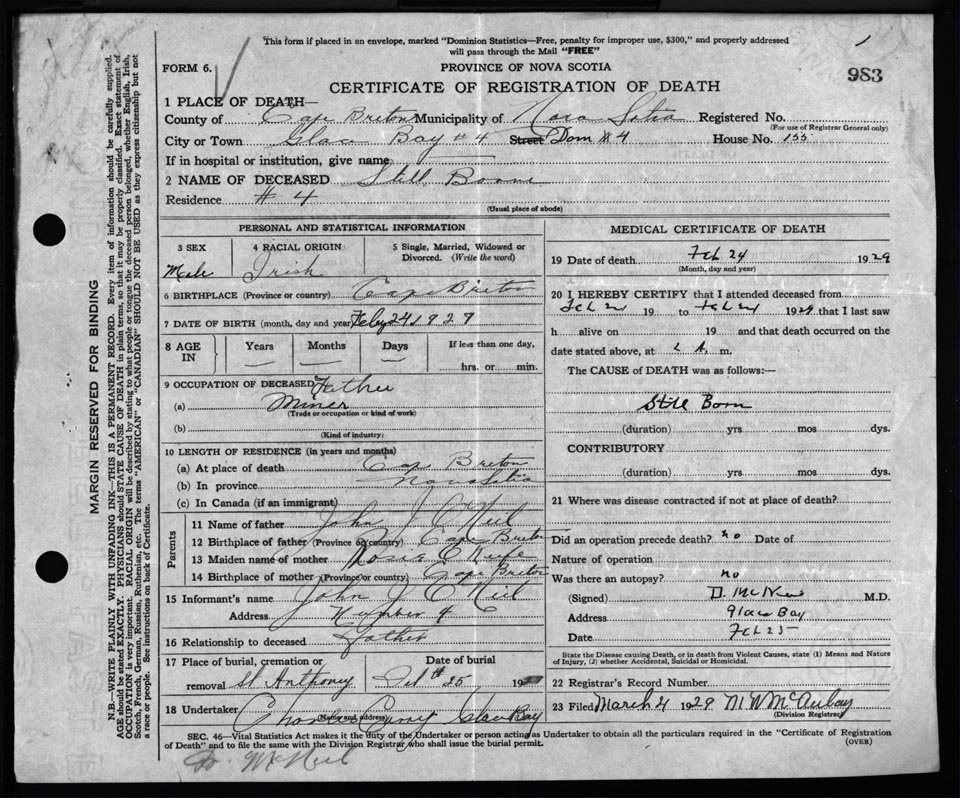 This form if placed in an envelope, marked "Dominion Statistics—Free, penalty for improper use, $300," and properly addressed
will pass through the Mail "FREE"
FORM 6.
PROVINCE OF NOVA SCOTIA
983
CERTIFICATE OF REGISTRATION OF DEATH
1 PLACE OF DEATH—
County of Cape Breton Municipality of Nova Sotia Registered No.
(For use of Registrar General only)
City or Town Glace Bay #4 Street Dom #4 House No. 155
If in hospital or institution, give name
2 NAME OF DECEASED Still Boone
Residence #4
(Usual place of abode)
MARGIN RESERVED FOR BINDING
N.B.—WRITE PLAINLY WITH UNFADING INK—THIS IS A PERMANENT RECORD. Every item of information should be carefully supplied.
AGE should be stated EXACTLY. PHYSICIANS should STATE CAUSE OF DEATH in plain terms, so that it may be properly classified. Exact statement of
OCCUPATION is very important. RACIAL ORIGIN will be described by stating to what people or tongue the deceased person belonged, whether English, Irish,
Scotch, French, German, Russian, Ruthenian, etc. The terms "AMERICAN" or "CANADIAN" SHOULD NOT BE USED as they express citizenship but not
a race or people. See instructions on back of Certificate.
PERSONAL AND STATISTICAL INFORMATION
3 SEX
Male
4 RACIAL ORIGIN
Irish
5 Single, Married, Widowed or
Divorced. (Write the word)
6 BIRTHPLACE (Province or country) Cape Breton
7 DATE OF BIRTH (month, day and year) Feby 24 1929
8 AGE
IN
Years
Months
Days
If less than one day,
hrs. or min.
9 OCCUPATION OF DECEASED Father
(a) Miner
(Trade or occupation or kind of work)
(b)
(Kind of industry)
10 LENGTH OF RESIDENCE (in years and months)
(a) At place of death Cape Breton
(b) In province Nova Sotia
(c) In Canada (if an immigrant)
Parents
11 Name of father John J O'Neil
12 Birthplace of father (Province or country) Cape Breton
13 Maiden name of mother Rosie O'Keefe
14 Birthplace of mother (Province or country) Cape Breton
15 Informant's name John J O'Neil
Address Number 4
16 Relationship to deceased Father
17 Place of burial, cremation or
removal St Anthoney
Date of burial
25 19
18 Undertaker Curry Glace Bay
(Name and address)
MEDICAL CERTIFICATE OF DEATH
19 Date of death Feb 24 1929
(Month, day and year)
20 I HEREBY CERTIFY that I attended deceased from
Feb 24 19 to Feb 24 1929 that I last saw
h alive on 19 and that death occurred on
the date stated above, at 2 A. m.
The CAUSE of DEATH was as follows:—
Still Born
(duration) yrs mos dys.
CONTRIBUTORY
(duration) yrs mos dys.
21 Where was disease contracted if not at place of death?
Did an operation precede death? no Date of
Nature of operation
Was there an autopsy? no
(Signed) D. McNeil M.D.
Address Glace Bay
Date Feb 25
State the Disease causing Death, or in death from Violent Causes, state (I) Means and Nature
of Injury, (J) whether Accidental, Suicidal or Homicidal.
22 Registrar's Record Number
23 Filed March 4 1929 M W McAulay
(Division Registrar)
SEC. 46—Vital Statistics Act makes it the duty of the Undertaker or person acting as Undertaker to obtain all the particulars required in the "Certificate of Registration
of Death" and to file the same with the Division Registrar who shall issue the burial permit.
(OVER)
Dr McNeil